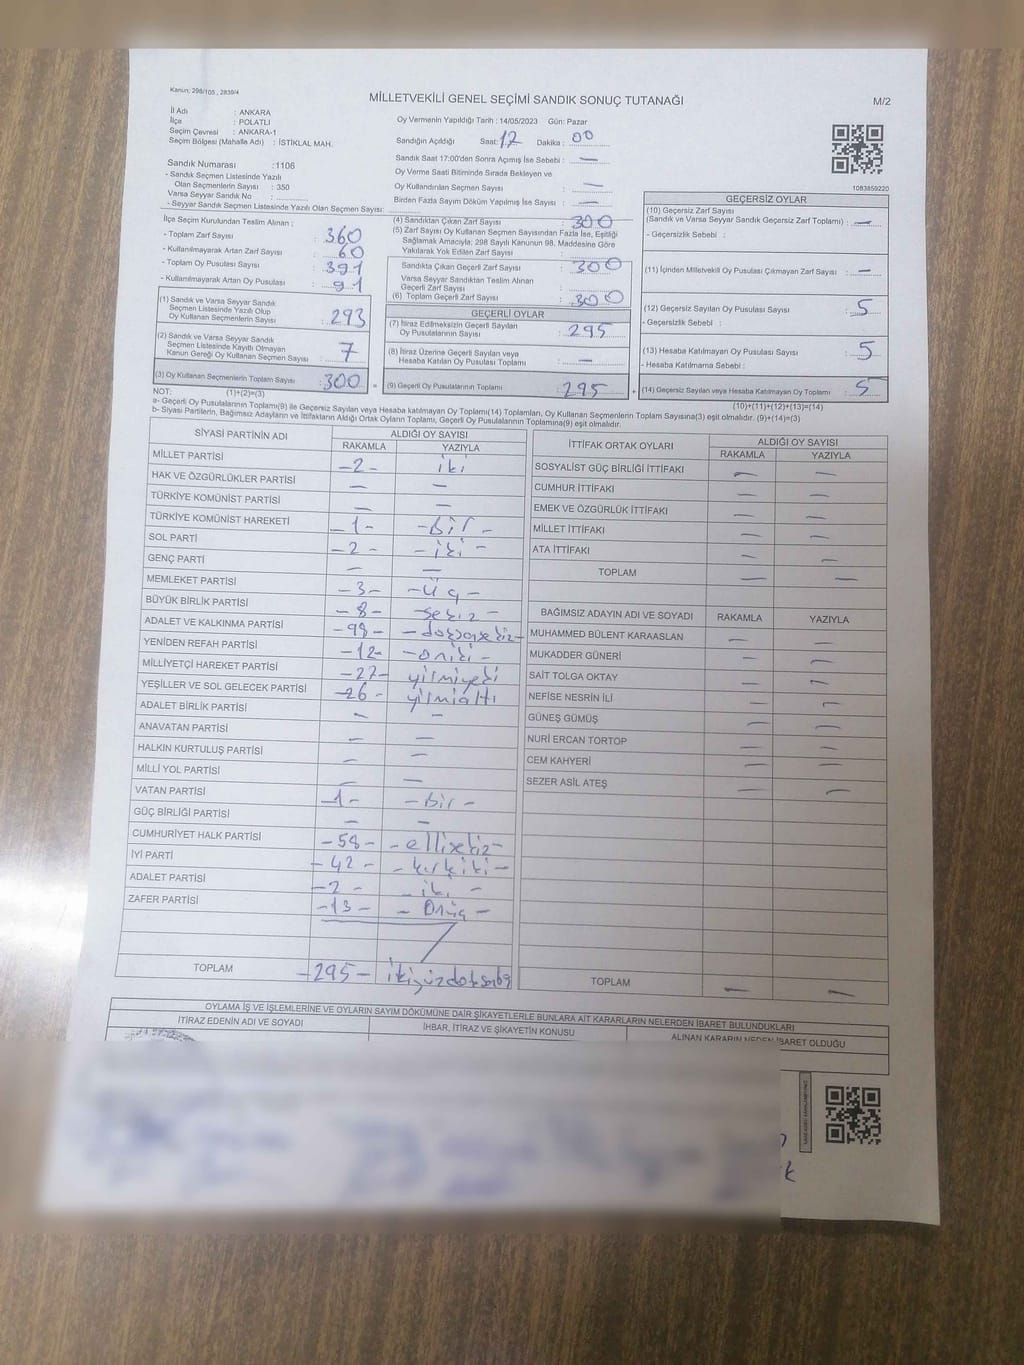 Kanun; 298/105 , 2839/4
MİLLETVEKİLİ GENEL SEÇİMİ SANDIK SONUÇ TUTANAĞI
M/2
İl Adı : ANKARA
İlçe : POLATLI
Seçim Çevresi : ANKARA-1
Seçim Bölgesi (Mahalle Adı) : İSTİKLAL MAH.
Oy Vermenin Yapıldığı Tarih : 14/05/2023 Gün: Pazar
Sandığın Açıldığı Saat: 17 Dakika : 00
Sandık Saat 17:00'den Sonra Açımış İse Sebebi : —
Oy Verme Saati Bitiminde Sırada Bekleyen ve
Oy Kullandırılan Seçmen Sayısı : —
Birden Fazla Sayım Döküm Yapılmış İse Sayısı : —
1083859220
Sandık Numarası :1106
- Sandık Seçmen Listesinde Yazılı
Olan Seçmenlerin Sayısı : 350
Varsa Seyyar Sandık No :
- Seyyar Sandık Seçmen Listesinde Yazılı Olan Seçmen Sayısı:
İlçe Seçim Kurulundan Teslim Alınan ;
- Toplam Zarf Sayısı : 360
- Kullanılmayarak Artan Zarf Sayısı : 60
- Toplam Oy Pusulası Sayısı : 391
- Kullanılmayarak Artan Oy Pusulası : 91
(1) Sandık ve Varsa Seyyar Sandık
Seçmen Listesinde Yazılı Olup
Oy Kullanan Seçmenlerin Sayısı : 293
(2) Sandık ve Varsa Seyyar Sandık
Seçmen Listesinde Kayıtlı Olmayan
Kanun Gereği Oy Kullanan Seçmen Sayısı : 7
(3) Oy Kullanan Seçmenlerin Toplam Sayısı : 300 =
(4) Sandıktan Çıkan Zarf Sayısı : 300
(5) Zarf Sayısı Oy Kullanan Seçmen Sayısından Fazla İse, Eşitliği
Sağlamak Amacıyla; 298 Sayılı Kanunun 98. Maddesine Göre
Yakılarak Yok Edilen Zarf Sayısı :
Sandıkta Çıkan Geçerli Zarf Sayısı : 300
Varsa Seyyar Sandıktan Teslim Alınan
Geçerli Zarf Sayısı :
(6) Toplam Geçerli Zarf Sayısı : 300
GEÇERLİ OYLAR
(7) İtiraz Edilmeksizin Geçerli Sayılan
Oy Pusulalarının Sayısı : 295
(8) İtiraz Üzerine Geçerli Sayılan veya
Hesaba Katılan Oy Pusulası Toplamı : —
(9) Geçerli Oy Pusulalarının Toplamı : 295 +
GEÇERSİZ OYLAR
(10) Geçersiz Zarf Sayısı
(Sandık ve Varsa Seyyar Sandık Geçersiz Zarf Toplamı) : —
- Geçersizlik Sebebi :
(11) İçinden Milletvekili Oy Pusulası Çıkmayan Zarf Sayısı : —
(12) Geçersiz Sayılan Oy Pusulası Sayısı : 5
- Geçersizlik Sebebi :
(13) Hesaba Katılmayan Oy Pusulası Sayısı : 5
- Hesaba Katılmama Sebebi :
(14) Geçersiz Sayılan veya Hesaba Katılmayan Oy Toplamı : 5
NOT: (1)+(2)=(3) (10)+(11)+(12)+(13)=(14)
a- Geçerli Oy Pusulalarının Toplamı(9) ile Geçersiz Sayılan veya Hesaba katılmayan Oy Toplamı(14) Toplamları, Oy Kullanan Seçmenlerin Toplam Sayısına(3) eşit olmalıdır. (9)+(14)=(3)
b- Siyasi Partilerin, Bağımsız Adayların ve İttifakların Aldığı Ortak Oyların Toplamı, Geçerli Oy Pusulalarının Toplamına(9) eşit olmalıdır.
SİYASİ PARTİNİN ADI ALDIĞI OY SAYISI
RAKAMLA YAZIYLA
MİLLET PARTİSİ -2- iki
HAK VE ÖZGÜRLÜKLER PARTİSİ — —
TÜRKİYE KOMÜNİST PARTİSİ — —
TÜRKİYE KOMÜNİST HAREKETİ -1- -bir-
SOL PARTİ -2- -iki-
GENÇ PARTİ — —
MEMLEKET PARTİSİ -3- -üç-
BÜYÜK BİRLİK PARTİSİ -8- -sekiz-
ADALET VE KALKINMA PARTİSİ -98- -doksansekiz-
YENİDEN REFAH PARTİSİ -12- -oniki-
MİLLİYETÇİ HAREKET PARTİSİ -27- yirmiyedi
YEŞİLLER VE SOL GELECEK PARTİSİ -26- yirmialtı
ADALET BİRLİK PARTİSİ — —
ANAVATAN PARTİSİ — —
HALKIN KURTULUŞ PARTİSİ — —
MİLLİ YOL PARTİSİ — —
VATAN PARTİSİ -1- -bir-
GÜÇ BİRLİĞİ PARTİSİ — —
CUMHURİYET HALK PARTİSİ -58- -ellisekiz-
İYİ PARTİ -42- -kırkiki-
ADALET PARTİSİ -2- -iki-
ZAFER PARTİSİ -13- -Onüç-
TOPLAM -295- ikiyüzdoksanbeş
İTTİFAK ORTAK OYLARI ALDIĞI OY SAYISI
RAKAMLA YAZIYLA
SOSYALİST GÜÇ BİRLİĞİ İTTİFAKI — —
CUMHUR İTTİFAKI — —
EMEK VE ÖZGÜRLÜK İTTİFAKI — —
MİLLET İTTİFAKI — —
ATA İTTİFAKI — —
TOPLAM — —
BAĞIMSIZ ADAYIN ADI VE SOYADI RAKAMLA YAZIYLA
MUHAMMED BÜLENT KARAASLAN — —
MUKADDER GÜNERİ — —
SAİT TOLGA OKTAY — —
NEFİSE NESRİN İLİ — —
GÜNEŞ GÜMÜŞ — —
NURİ ERCAN TORTOP — —
CEM KAHYERİ — —
SEZER ASİL ATEŞ — —
TOPLAM — —
OYLAMA İŞ VE İŞLEMLERİNE VE OYLARIN SAYIM DÖKÜMÜNE DAİR ŞİKAYETLERLE BUNLARA AİT KARARLARIN NELERDEN İBARET BULUNDUKLARI
İTİRAZ EDENİN ADI VE SOYADI İHBAR, İTİRAZ VE ŞİKAYETİN KONUSU ALINAN KARARIN NEDEN İBARET OLDUĞU